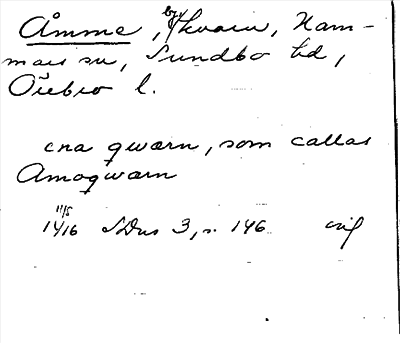 Åmme, by, kvarn, Ham-
mars sn, Sundbo hd,
Örebro l.
ena qwarn, som callas
Amoqwarn
11/5
1416 SDns 3, s. 146 orig